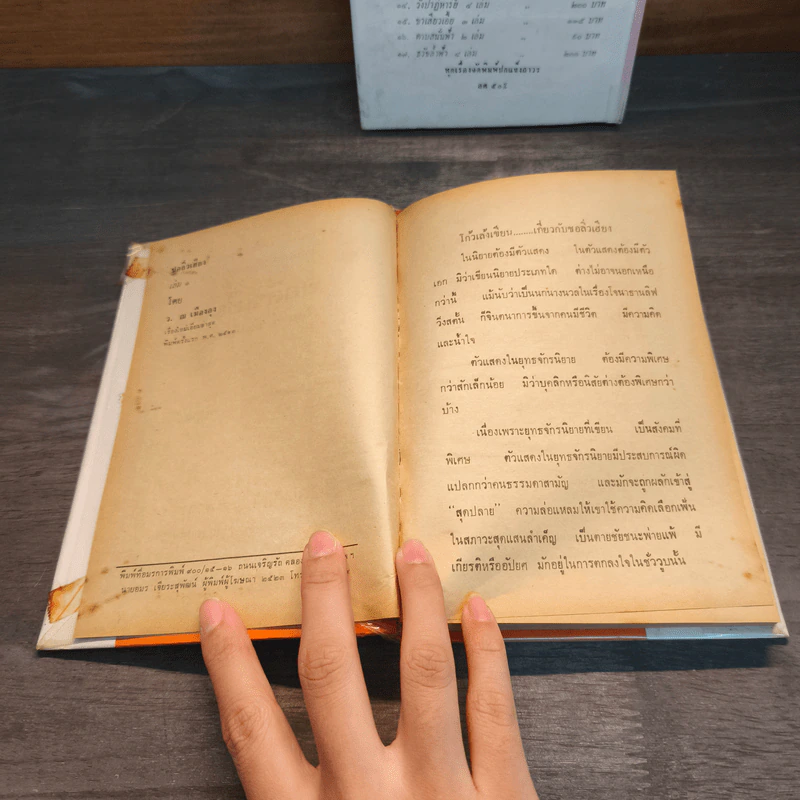 ๑๔. วังปาฏิหารย์ ๔ เล่ม ,, ๒๐๐ บาท
๑๕. ขาเสียวเอ้ย ๓ เล่ม ,, ๑๓๕ บาท
๑๖. ดาบสนั่นฟ้า ๒ เล่ม ,, ๙๐ บาท
๑๗. ๔ เล่ม ,, ๒๐๐ บาท
ทุกเรื่องจัดพิมพ์ปกแข็งถาวร
ขอลิ่วเฮียง
เล่ม ๑
โดย
ว. ณ เมืองลุง
เรียบเรียง
พิมพ์ครั้งแรก พ.ศ. ๒๕๒๐
พิมพ์ที่อมรการพิมพ์ ๙๐๐/๑๕–๑๖ ถนนเจริญรัถ คลอง
นายอมร เจียระสุพัฒน์ ผู้พิมพ์ผู้โฆษณา ๒๕๒๓ โทร
โก้วเล้งเขียน........เกี่ยวกับชอลิ่วเฮียง
ในนิยายต้องมีตัวแสดง ในตัวแสดงต้องมีตัว
เอก มิว่าเขียนนิยายประเภทใด ต่างไม่อาจนอกเหนือ
กว่านี้ แม้นับว่าเป็นนกนางนวลในเรื่องโจนาธานลิฟ
วิงสตั้น ก็จินตนาการขึ้นจากคนมีชีวิต มีความคิด
และน้ำใจ
ตัวแสดงในยุทธจักรนิยาย ต้องมีความพิเศษ
กว่าสักเล็กน้อย มิว่าบุคลิกหรือนิสัยต่างต้องพิเศษกว่า
บ้าง
เนื่องเพราะยุทธจักรนิยายที่เขียน เป็นสังคมที่
พิเศษ ตัวแสดงในยุทธจักรนิยายมีประสบการณ์ผิด
แปลกกว่าคนธรรมดาสามัญ และมักจะถูกผลักเข้าสู่
"สุดปลาย" ความล่อแหลมให้เขาใช้ความคิดเลือกเฟ้น
ในสภาวะสุดแสนสำคัญ เป็นตายชัยชนะพ่ายแพ้ มี
เกียรติหรืออัปยศ มักอยู่ในการตกลงใจในชั่ววูบนั้น